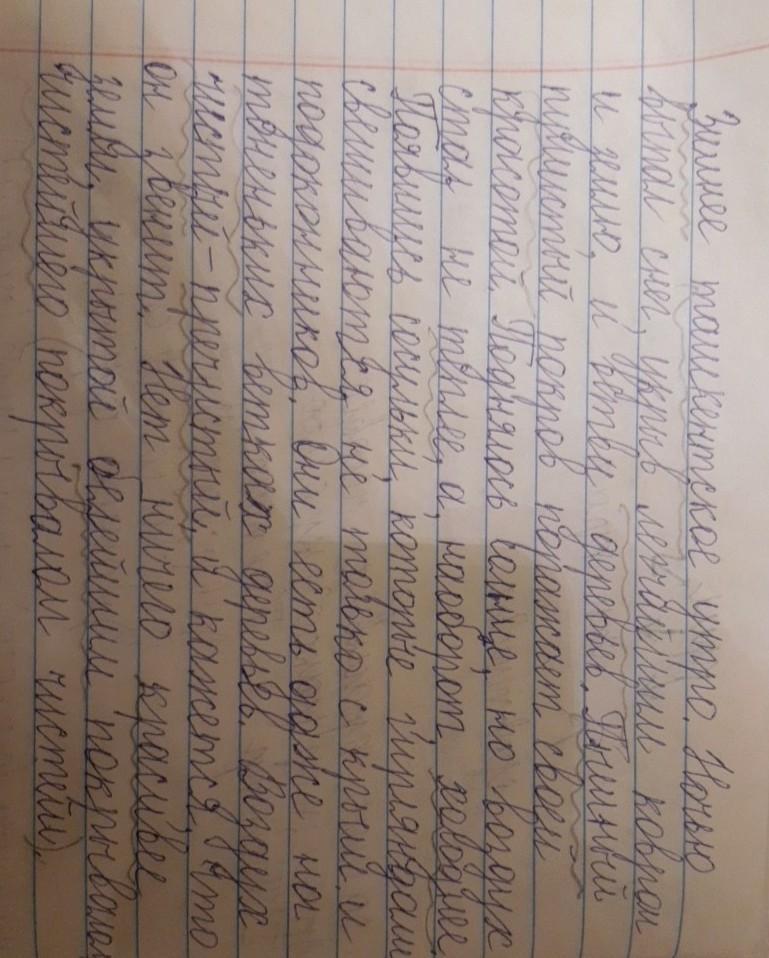 Зимнее ташкентское утро. Ночью
выпал снег, укрыв легчайшим ковром
и землю, и ветви деревьев. Пышный
пушистый покров поражает своей
красотой. Поднялось солнце, но воздух
стал не теплее, а, наоборот холоднее
Появились сосульки, которые гирляндами
свешиваются не только с крыш и
подоконников. Они есть даже на
тоненьких ветках деревьев. Воздух
чистый-пречистый, и кажется, что
он звенит. Нет ничего красивее
земли, укрытой белейшим покрывалом
чистейшего (покрывалом чистейш).